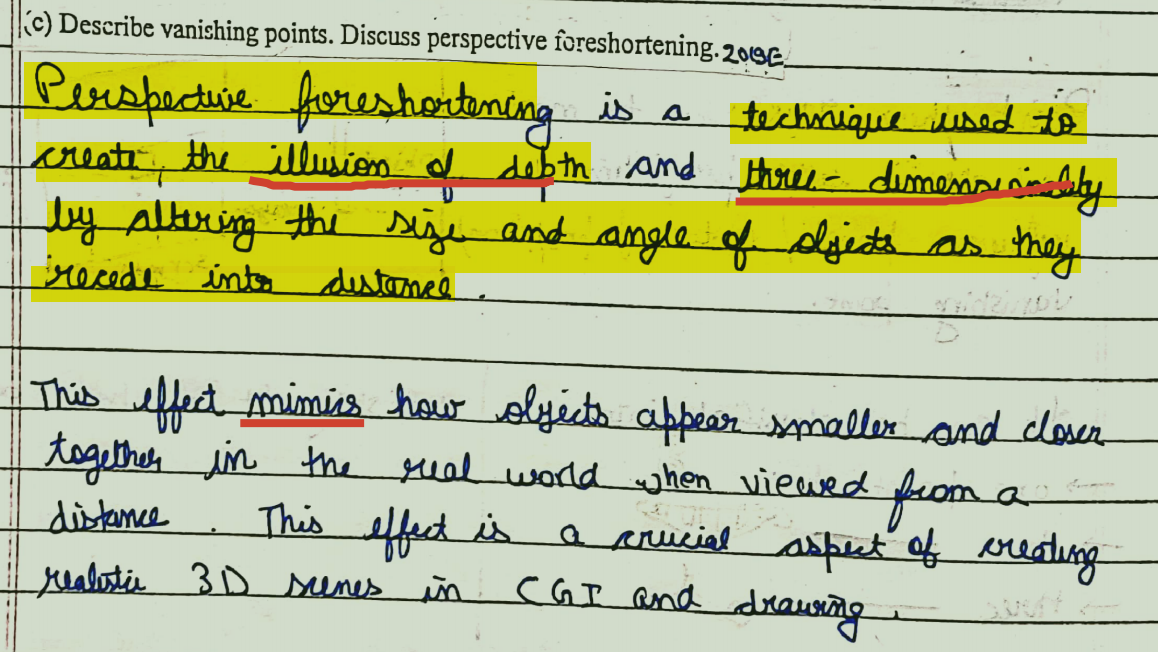 (c) Describe vanishing points. Discuss perspective foreshortening. 2019E
Perspective foreshortening is a technique used to
create, the illusion of depth and three-dimensionality
by altering the size and angle of objects as they
recede into distance.
This effect mimics how objects appear smaller and closer
together in the real world when viewed from a
distance. This effect is a crucial aspect of creating
realistic 3D scenes in CGI and drawing.